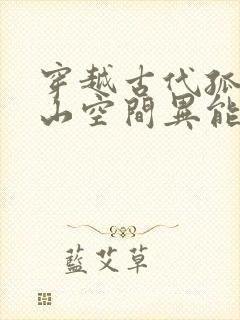 穿越古代孤
山空間異能
藍艾草